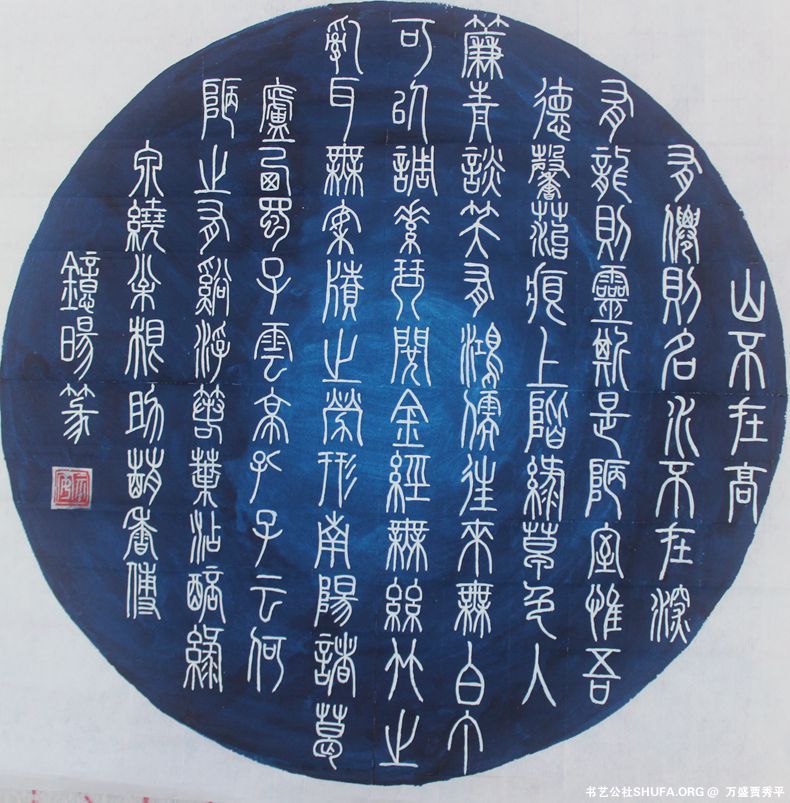 山不在高
有僊則名水不在深
有龍則靈斯是陋室惟吾
德馨苔痕上階緑草色入
簾青談笑有鴻儒往來無白丁
可以調素琴閱金經無絲竹之
亂耳無案牘之勞形南陽諸葛
廬西蜀子雲亭孔子云何
陋之有谿浮箬葉沾醅緑
泉繞助香
暘篆
书艺公社SHUFA.ORG @ 万盛贾秀平